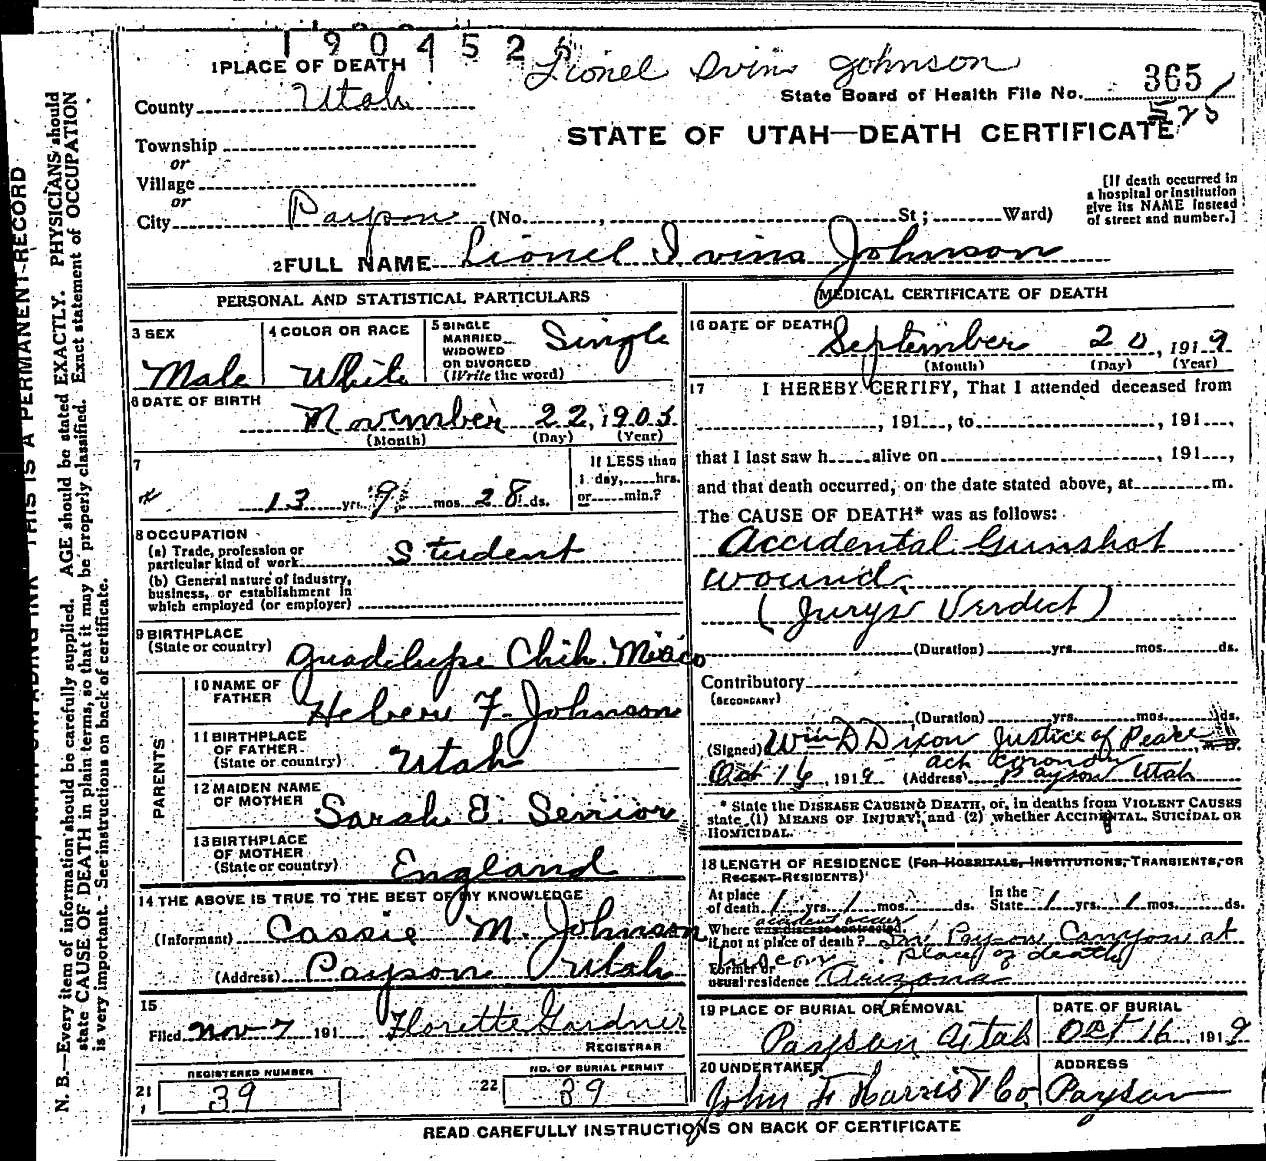 190452
Lionel Ivins Johnson
1 PLACE OF DEATH
365
County Utah
State Board of Health File No.
525
Township
STATE OF UTAH—DEATH CERTIFICATE
or
Village
or
[If death occurred in a hospital or institution give its NAME instead of street and number.]
City Payson (No. , St ; Ward)
2 FULL NAME Lionel Ivins Johnson
PERSONAL AND STATISTICAL PARTICULARS
3 SEX
Male
4 COLOR OR RACE
White
5 SINGLE
MARRIED
WIDOWED
OR DIVORCED
(Write the word)
Single
6 DATE OF BIRTH
November 22, 1905
(Month) (Day) (Year)
7
13 yrs. 9 mos. 28 ds.
If LESS than
1 day, hrs.
or min.?
8 OCCUPATION
(a) Trade, profession or
particular kind of work Student
(b) General nature of industry,
business, or establishment in
which employed (or employer)
9 BIRTHPLACE
(State or country) Guadelupe Chih. Mexico
PARENTS
10 NAME OF
FATHER
F. Johnson
11 BIRTHPLACE
OF FATHER
(State or country) Utah
12 MAIDEN NAME
OF MOTHER
Sarah E. Senior
13 BIRTHPLACE
OF MOTHER
(State or country) England
14 THE ABOVE IS TRUE TO THE BEST OF MY KNOWLEDGE
(Informant) Cassie M. Johnson
(Address) Payson Utah
15
Filed Nov 7 191 Florette Gardner
REGISTRAR
REGISTERED NUMBER
21 39
NO. OF BURIAL PERMIT
22 39
MEDICAL CERTIFICATE OF DEATH
16 DATE OF DEATH
September 20, 1919
(Month) (Day) (Year)
17 I HEREBY CERTIFY, That I attended deceased from
, 191 , to , 191 ,
that I last saw h alive on , 191 ,
and that death occurred, on the date stated above, at m.
The CAUSE OF DEATH* was as follows:
Accidental Gunshot
wound
(Jury's Verdict)
(Duration) yrs. mos. ds.
Contributory
(SECONDARY)
(Duration) yrs. mos. ds.
(Signed) Wm D Dixon Justice of Peace
act coronor
Oct 16, 1919 (Address) Payson Utah
* State the DISEASE CAUSING DEATH, or, in deaths from VIOLENT CAUSES
state (1) MEANS OF INJURY; and (2) whether ACCIDENTAL, SUICIDAL OR
HOMICIDAL.
18 LENGTH OF RESIDENCE (FOR HOSPITALS, INSTITUTIONS, TRANSIENTS, OR
RECENT RESIDENTS)
At place
of death 1 yrs. 1 mos. ds.
In the
State 1 yrs. 1 mos. ds.
accident occur
Where was disease contracted,
if not at place of death? In Payson Canyon at
place of death
Former or
usual residence Arizona
19 PLACE OF BURIAL OR REMOVAL
Payson Utah
DATE OF BURIAL
Oct 16, 1919
20 UNDERTAKER
John F Harris & Co,
ADDRESS
Payson
READ CAREFULLY INSTRUCTIONS ON BACK OF CERTIFICATE
THIS IS A PERMANENT RECORD
N. B.—Every item of information should be carefully supplied. AGE should be stated EXACTLY. PHYSICIANS should
state CAUSE OF DEATH in plain terms, so that it may be properly classified. Exact statement of OCCUPATION
is very important. See instructions on back of certificate.